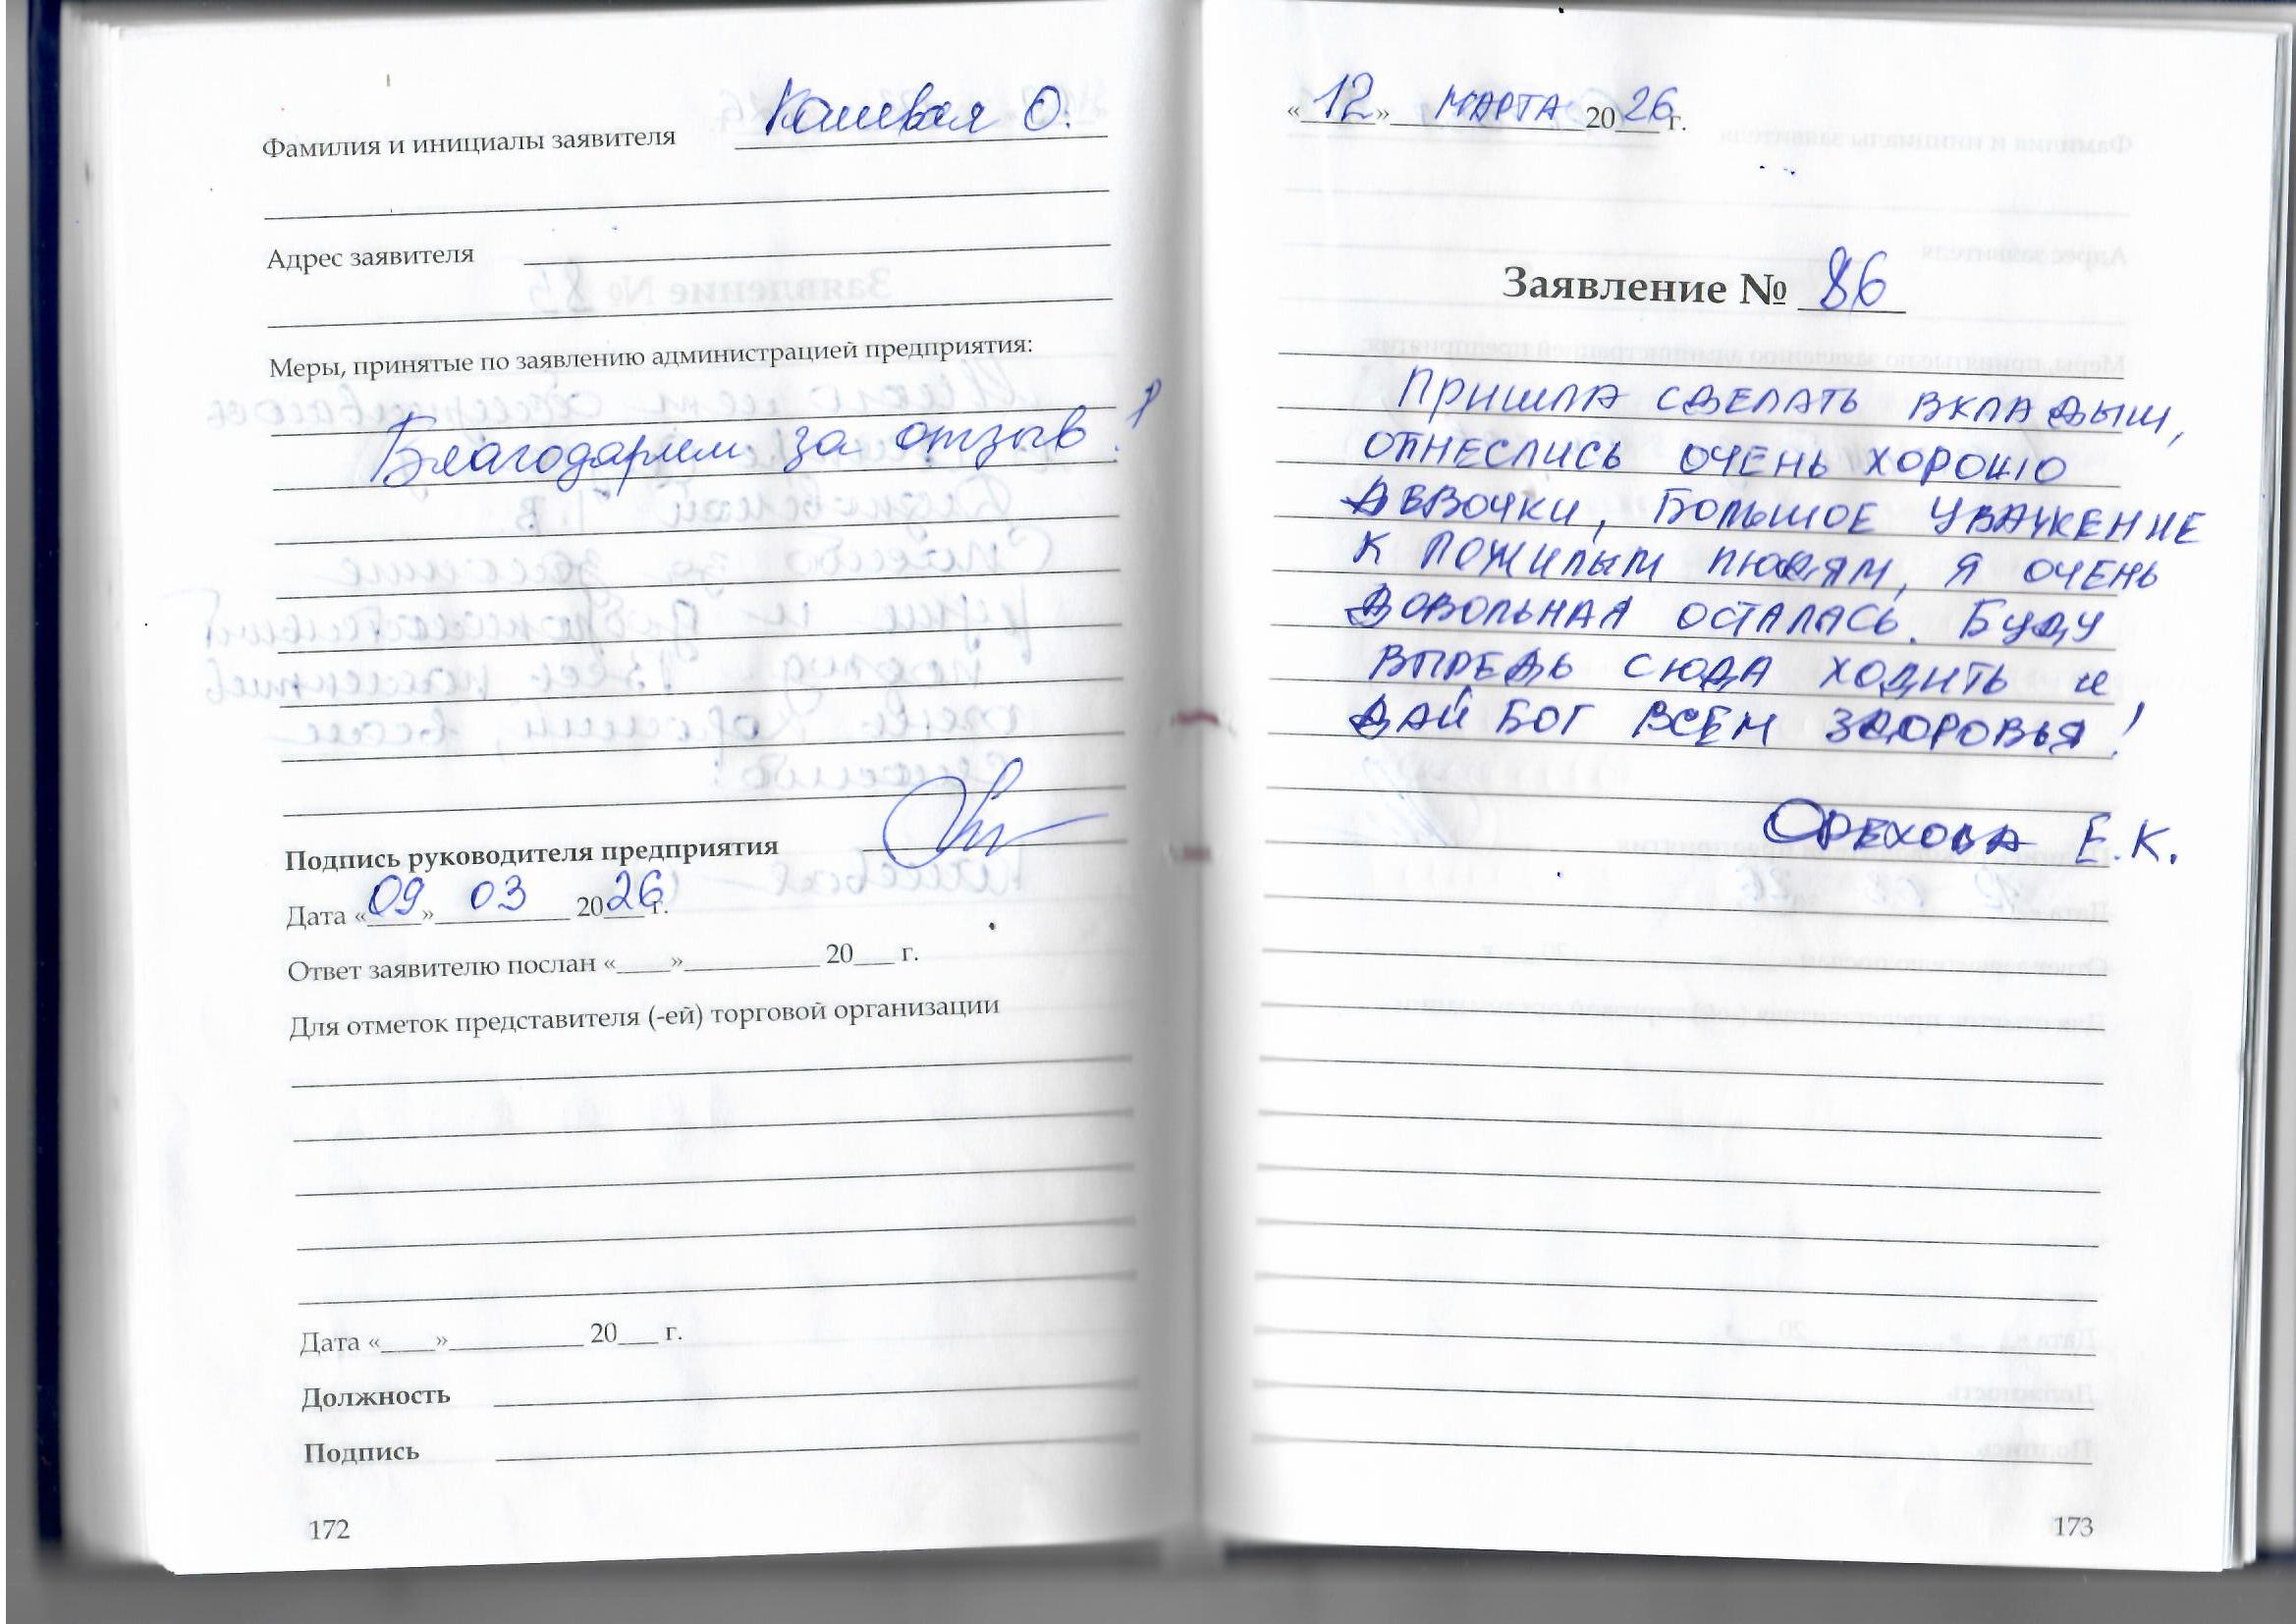 Фамилия и инициалы заявителя Кошевая О.
Адрес заявителя
Меры, принятые по заявлению администрацией предприятия:
Благодарим за отзыв!
Подпись руководителя предприятия
Дата «09» 03 2026 г.
Ответ заявителю послан «____»__________ 20___ г.
Для отметок представителя (-ей) торговой организации
Дата «____»__________ 20___ г.
Должность
Подпись
172
«12» МАРТА 2026 г.
Заявление № 86
ПРИШЛА СДЕЛАТЬ ВКЛАДЫШ,
ОТНЕСЛИСЬ ОЧЕНЬ ХОРОШО
ДЕВОЧКИ, БОЛЬШОЕ УВАЖЕНИЕ
К ПОЖИЛЫМ ЛЮДЯМ, Я ОЧЕНЬ
ДОВОЛЬНАЯ ОСТАЛАСЬ. БУДУ
ВПРЕДЬ СЮДА ХОДИТЬ и
ДАЙ БОГ ВСЕМ ЗДОРОВЬЯ!
ОРЕХОВА Е.К.
173